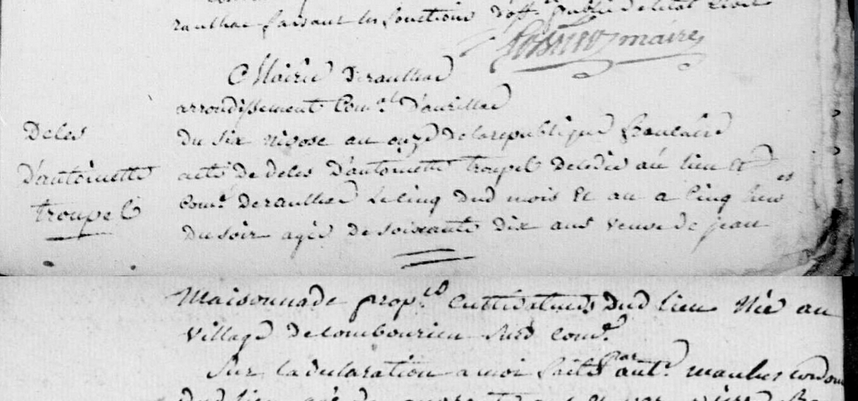 raulhac faisant les fonctions d'off. public de l'état civil
maire
Mairie de raulhac
arrondissement Com.al d'aurillac
Deces
d'antoinette
troupel
du six nivose an onze de la republique francaise
acte de deces d'antoinette troupel decedee au lieu et
com.e de raulhac le cinq dud mois et an a cinq heures
du soir agée de soixante dix ans veuve de jean
Maisonnade prop.re cultivateur dud lieu née au
village de sud com.e
Sur la declaration a moi faite par ant.e cordon
dud lieu agé de